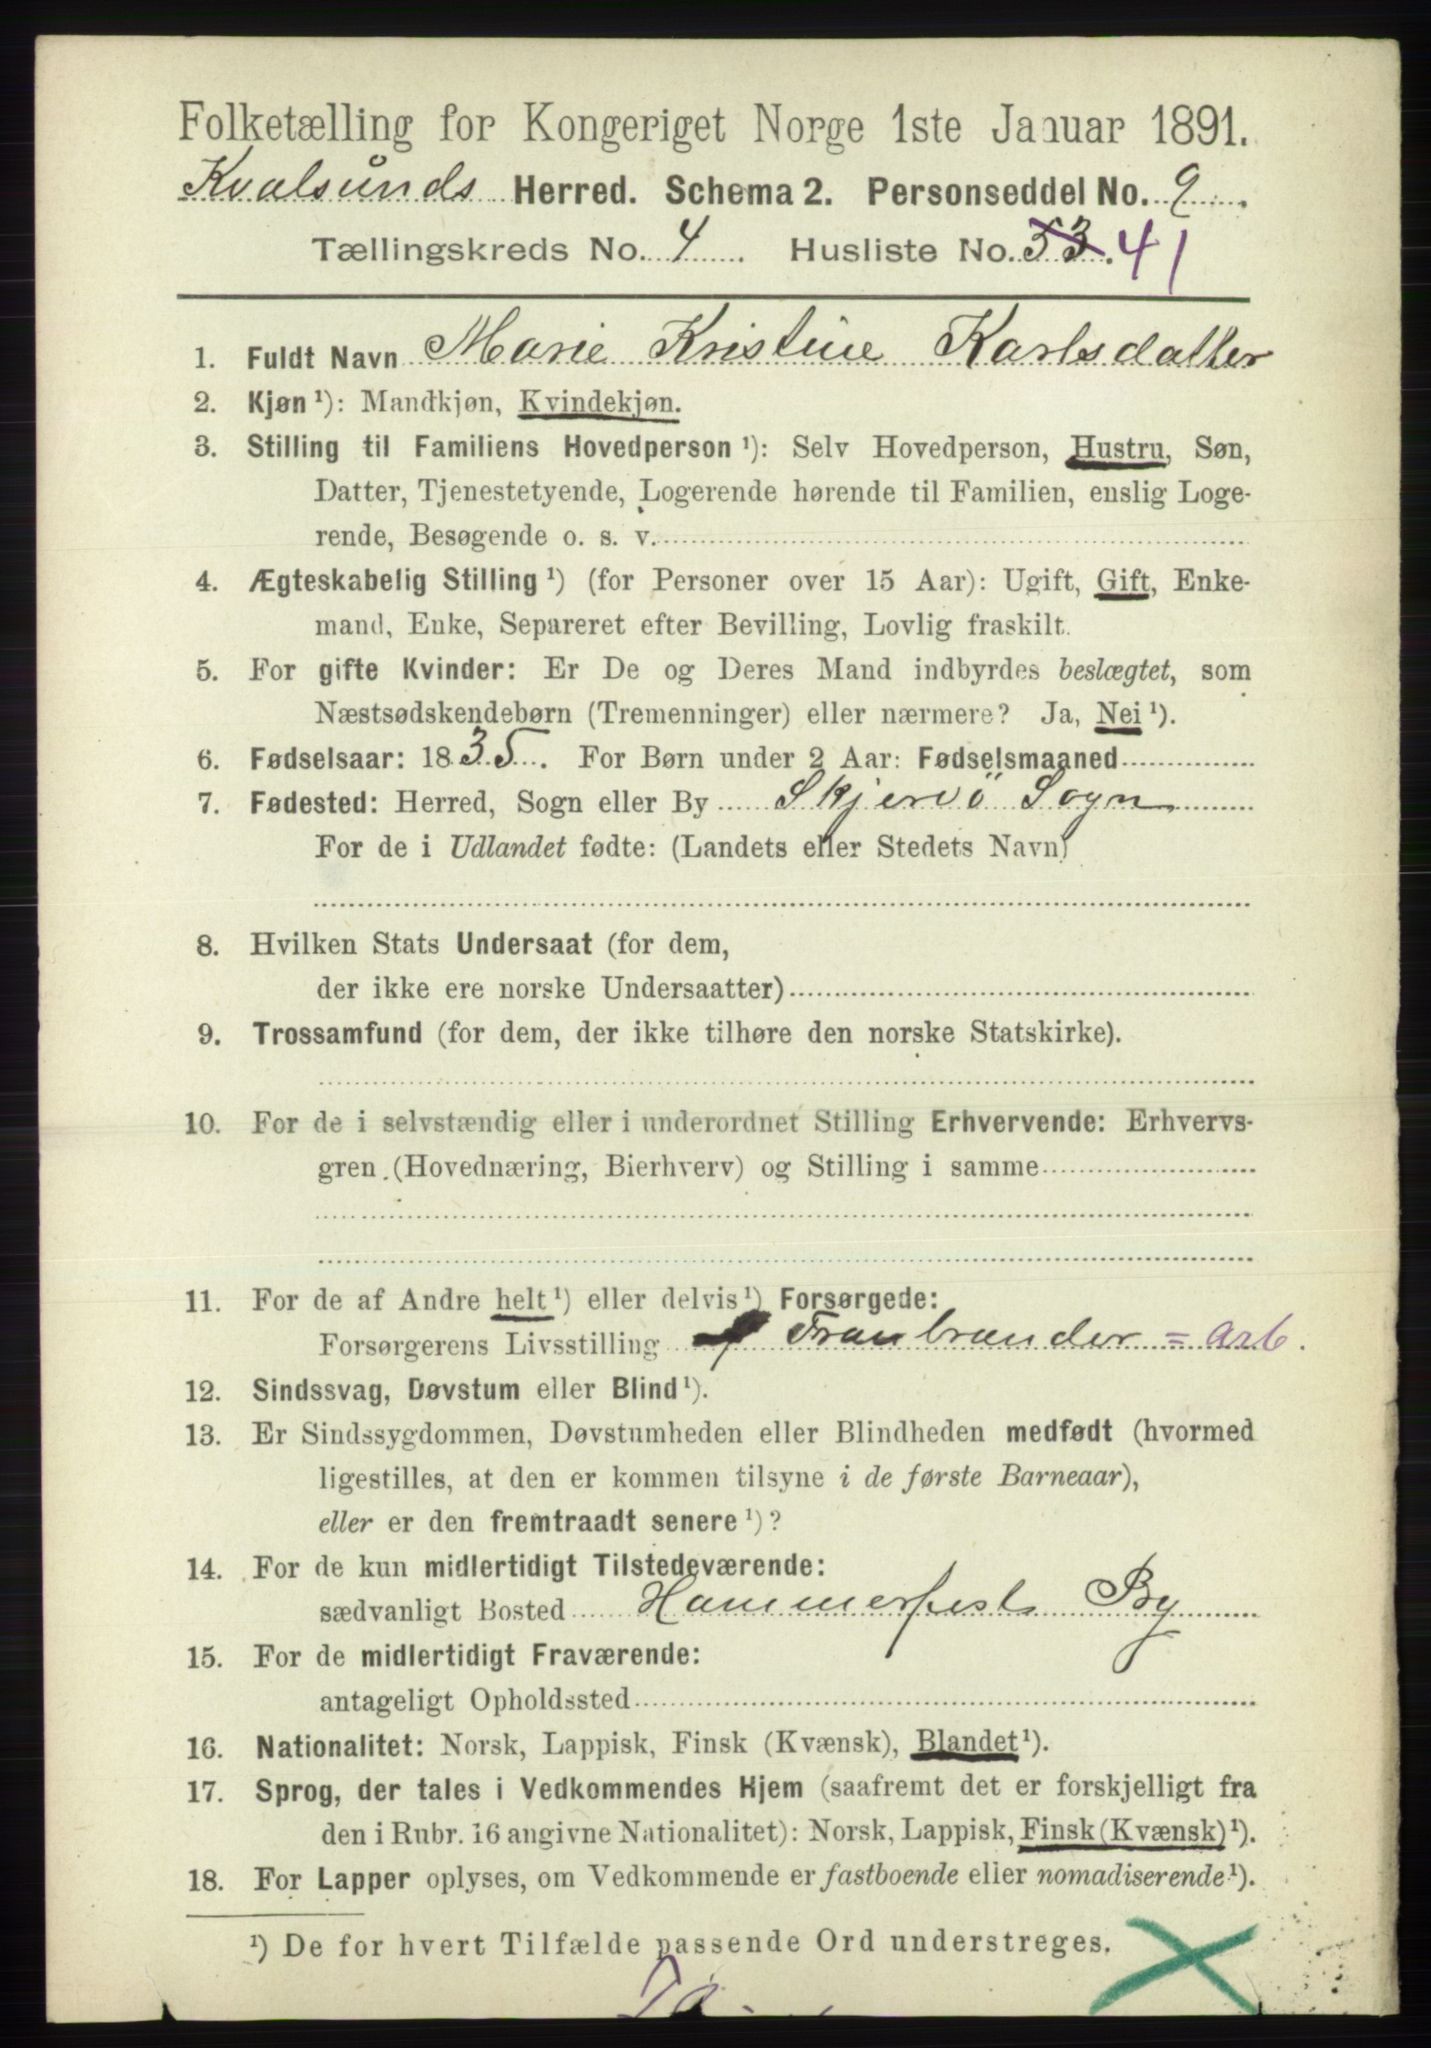 Folketælling for Kongeriget Norge 1ste Januar 1891.
Kvalsunds Herred. Schema 2. Personseddel No. 9
Tællingskreds No. 4 Husliste No. 53 41
1. Fuldt Navn Marie Kristine Karlsdatter
2. Kjøn ¹): Mandkjøn, Kvindekjøn.
3. Stilling til Familiens Hovedperson ¹): Selv Hovedperson, Hustru, Søn,
Datter, Tjenestetyende, Logerende hørende til Familien, enslig Loge-
rende, Besøgende o. s. v.
4. Ægteskabelig Stilling ¹) (for Personer over 15 Aar): Ugift, Gift, Enke-
mand, Enke, Separeret efter Bevilling, Lovlig fraskilt.
5. For gifte Kvinder: Er De og Deres Mand indbyrdes beslægtet, som
Næstsødskendebørn (Tremenninger) eller nærmere? Ja, Nei ¹).
6. Fødselsaar: 1835. For Børn under 2 Aar: Fødselsmaaned
7. Fødested: Herred, Sogn eller By Skjervö Sogn
For de i Udlandet fødte: (Landets eller Stedets Navn)
8. Hvilken Stats Undersaat (for dem,
der ikke ere norske Undersaatter)
9. Trossamfund (for dem, der ikke tilhøre den norske Statskirke).
10. For de i selvstændig eller i underordnet Stilling Erhvervende: Erhvervs-
gren (Hovednæring, Bierhverv) og Stilling i samme
11. For de af Andre helt ¹) eller delvis ¹) Forsørgede:
Forsørgerens Livsstilling Tranbrænder = arb.
12. Sindssvag, Døvstum eller Blind ¹).
13. Er Sindssygdommen, Døvstumheden eller Blindheden medfødt (hvormed
ligestilles, at den er kommen tilsyne i de første Barneaar),
eller er den fremtraadt senere ¹)?
14. For de kun midlertidigt Tilstedeværende:
sædvanligt Bosted Hammerfest By
15. For de midlertidigt Fraværende:
antageligt Opholdssted
16. Nationalitet: Norsk, Lappisk, Finsk (Kvænsk), Blandet ¹).
17. Sprog, der tales i Vedkommendes Hjem (saafremt det er forskjelligt fra
den i Rubr. 16 angivne Nationalitet): Norsk, Lappisk, Finsk (Kvænsk) ¹).
18. For Lapper oplyses, om Vedkommende er fastboende eller nomadiserende ¹).
¹) De for hvert Tilfælde passende Ord understreges.